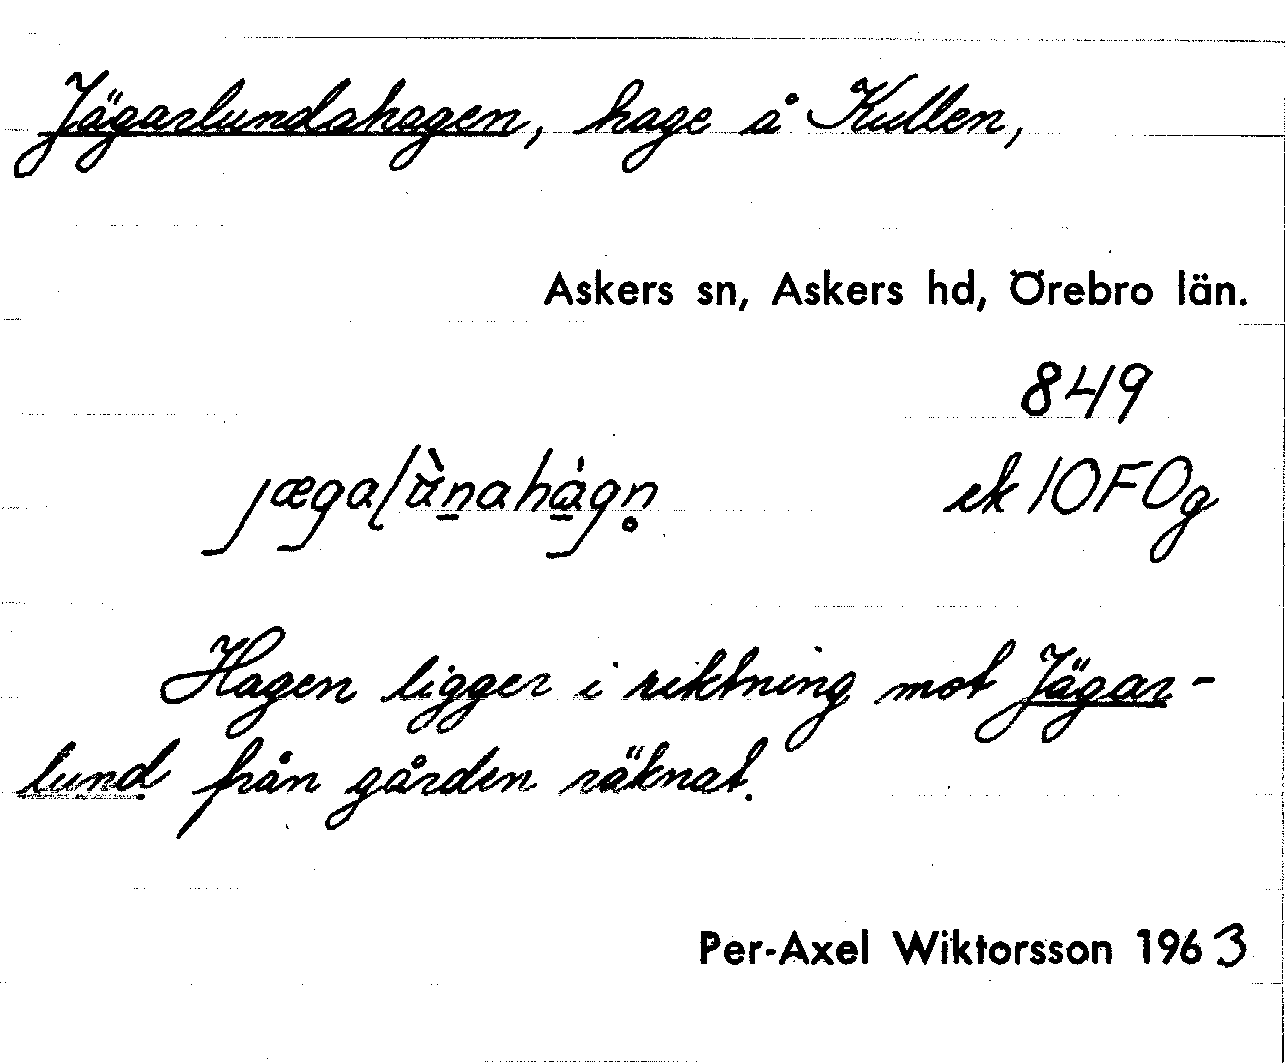 Jägarlundshagen, hage å Kullen,
Askers sn, Askers hd, Örebro län.
849
ek 10F0g
Hagen ligger i riktning mot Jägar-
lund från gården räknat.
Per-Axel Wiktorsson 1963